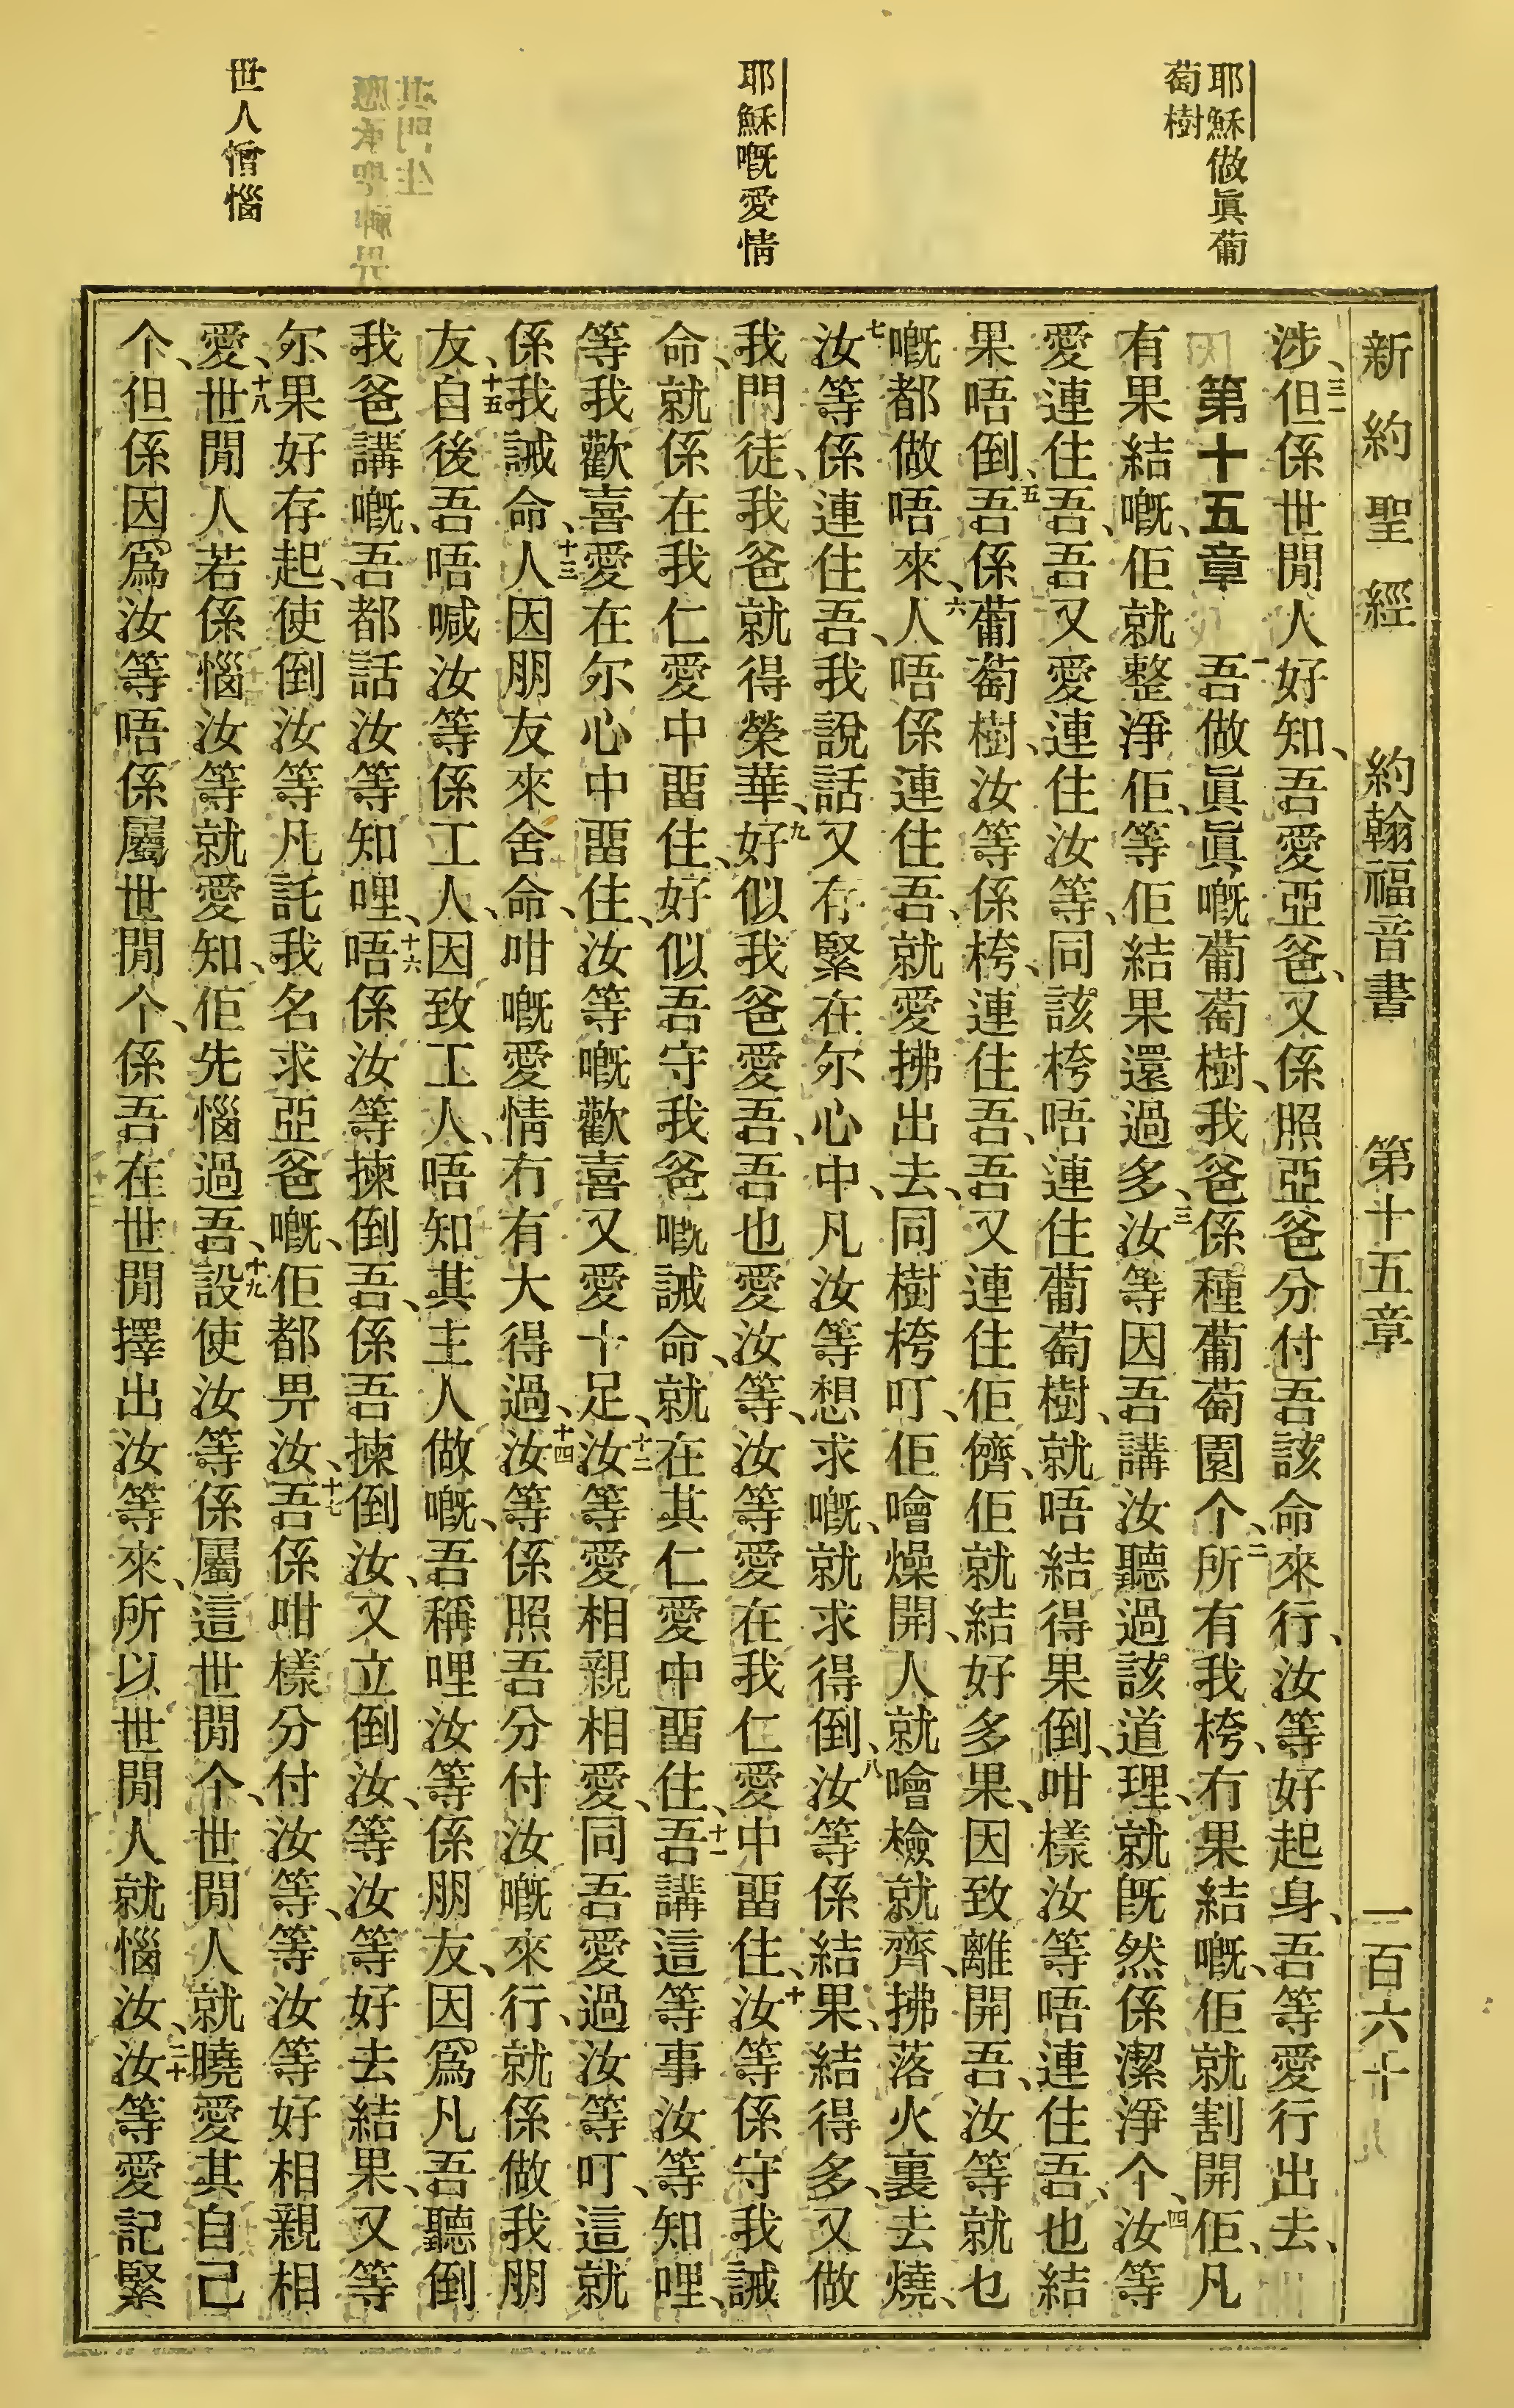 耶穌做眞葡
萄樹
耶穌嘅愛情
世人憎惱
新約聖經 約翰福音書 第十五章 一百六十
涉、三一但係世閒人好知、吾愛亞爸、又係照亞爸分付吾該命來行、汝等好起身、吾等愛行出去、
第十五章 一吾做眞眞嘅葡萄樹、我爸係種葡萄園个、二所有我桍、冇果結嘅、佢就割開佢、凡
有果結嘅、佢就整淨佢、等佢結果還過多、三汝等因吾講汝聽過該道理、就旣然係潔淨个、四汝等
愛連住吾、吾又愛連住汝等、同該桍唔連住葡萄樹、就唔結得果倒、咁樣汝等唔連住吾、也結
果唔倒、五吾係葡萄樹、汝等係桍、連住吾、吾又連住佢儕、佢就結好多果、因致離開吾、汝等就乜
嘅都做唔來、六人唔係連住吾、就愛拂出去、同樹桍叮、佢噲燥開、人就噲檢就齊、拂落火裏去燒、
七汝等係連住吾、我說話又存緊在尔心中、凡汝等想求嘅、就求得倒、八汝等係結果、結得多、又做
我門徒、我爸就得榮華、九好似我爸愛吾、吾也愛汝等、汝等愛在我仁愛中畱住、十汝等係守我誡
命、就係在我仁愛中畱住、好似吾守我爸嘅誡命、就在其仁愛中畱住、十一吾講這等事汝等知哩、
等我歡喜愛在尔心中畱住、汝等嘅歡喜又愛十足、十二汝等愛相親相愛、同吾愛過汝等叮、這就
係我誡命、十三人因朋友來舍命、咁嘅愛情冇有大得過、十四汝等係照吾分付汝嘅來行、就係做我朋
友、十五自後吾唔喊汝等係工人、因致工人、唔知其主人做嘅、吾稱哩汝等係朋友、因爲凡吾聽倒
我爸講嘅、吾都話汝等知哩、十六唔係汝等揀倒吾、係吾揀倒汝、又立倒汝、等汝等好去結果、又等
尔果好存起、使倒汝等凡託我名求亞爸嘅、佢都畀汝、十七吾係咁樣分付汝等、等汝等好相親相
愛、十八世閒人若係惱汝等就愛知、佢先惱過吾、十九設使汝等係屬這世閒个、世閒人就曉愛其自己
个、但係因爲汝等唔係屬世閒个、係吾在世閒擇出汝等來、所以世閒人就惱汝、二十汝等愛記緊